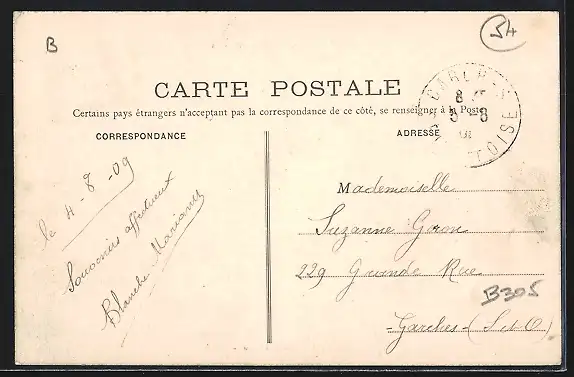 B
54
CARTE POSTALE
Certains pays étrangers n'acceptant pas la correspondance de ce côté, se renseigner à la Poste
CORRESPONDANCE
ADRESSE
8
5-8
OISE
le 4-8-09
Souvenirs affectueux
Blanche
Mademoiselle
Suzanne Goron
229 Grande Rue
B305
-Garches-(S-et-O)